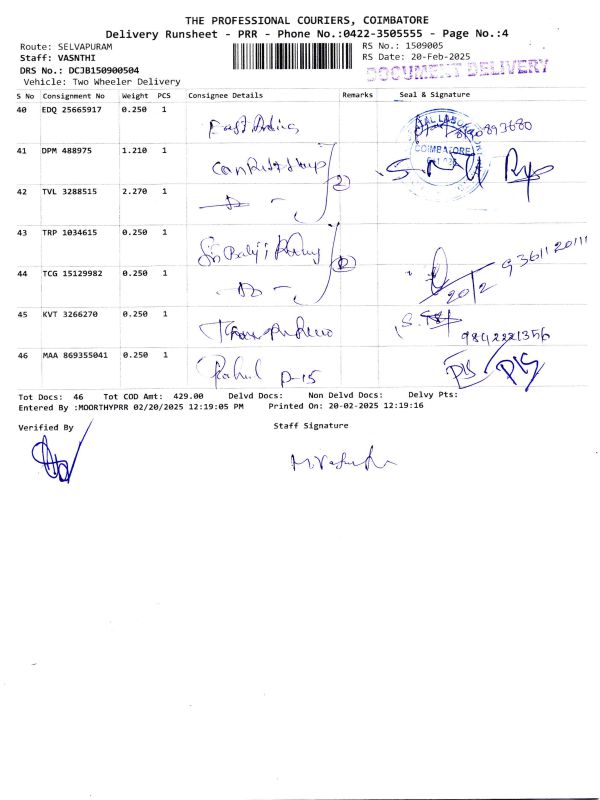 THE PROFESSIONAL COURIERS, COIMBATORE
Delivery Runsheet - PRR - Phone No.:0422-3505555 - Page No.:4
Route: SELVAPURAM
RS No.: 1509005
Staff: VASNTHI
RS Date: 20-Feb-2025
DRS No.: DCJB150900504
DOCUMENT DELIVERY
Vehicle: Two Wheeler Delivery
S No Consignment No Weight PCS Consignee Details Remarks Seal & Signature
40 EDQ 25665917 0.250 1
41 DPM 488975 1.210 1
COIMBATORE
42 TVL 3288515 2.270 1
2
43 TRP 1034615 0.250 1
9361120111
44 TCG 15129982 0.250 1
20/2
45 KVT 3266270 0.250 1
9842221356
46 MAA 869355041 0.250 1
Rahul P-15
Tot Docs: 46 Tot COD Amt: 429.00 Delvd Docs: Non Delvd Docs: Delvy Pts:
Entered By :MOORTHYPRR 02/20/2025 12:19:05 PM Printed On: 20-02-2025 12:19:16
Verified By
Staff Signature